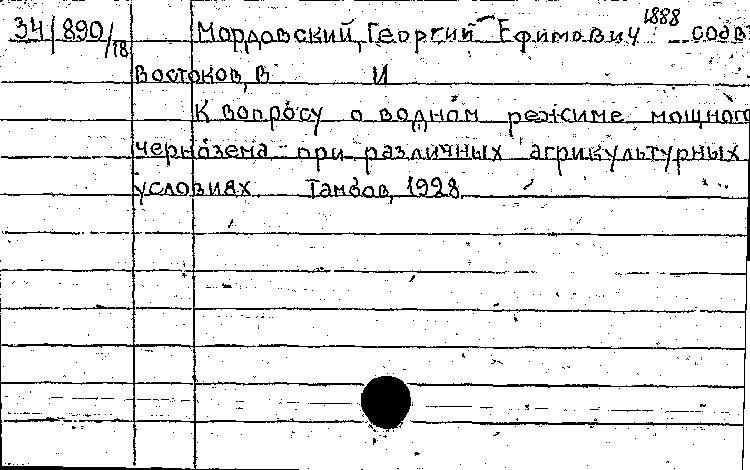 34/890/18 Мордовский, Георгий Ефимович 1888 соав
Востоков, В И
К вопросу о водном режиме мощного
чернозема при различных агрикультурных
условиях. Тамбов, 1928